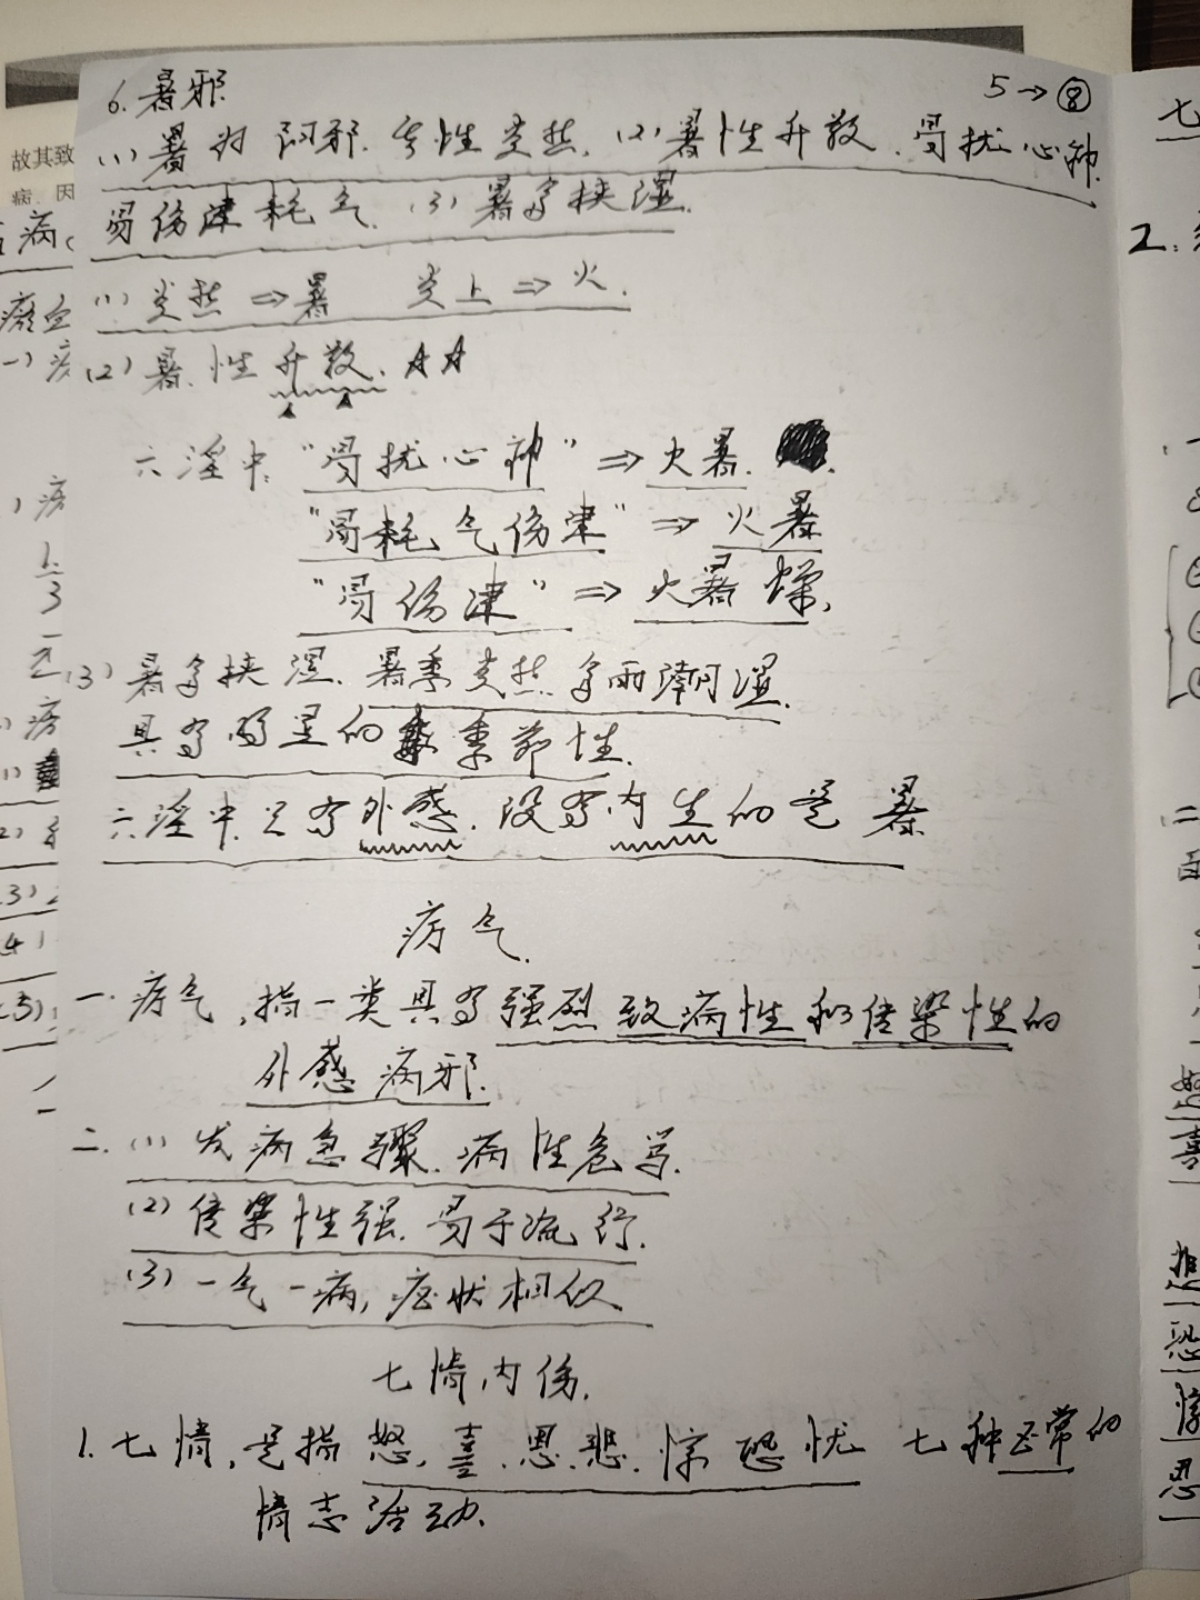 5→⑧
6.暑邪
(1)暑为阳邪.其性炎热.(2)暑性升散.易扰心神.
易伤津耗气.(3)暑多挟湿.
(1)炎热⇒暑 炎上⇒火.
(2)暑.性升散.
六淫中."易扰心神"⇒火暑.
"易耗气伤津"⇒火暑
"易伤津"⇒火暑燥,
(3)暑多挟湿.暑季炎热多雨潮湿.
具有明显的季节性.
六淫中.只有外感.没有内生的是暑
疠气.
一.疠气,指一类具有强烈致病性和传染性的
外感病邪.
二.(1)发病急骤.病性危笃.
(2)传染性强.易于流行.
(3)一气一病,症状相似
七情内伤.
1.七情,是指怒.喜.思.悲.惊恐忧七种正常的
情志活动.
故其致
病.因